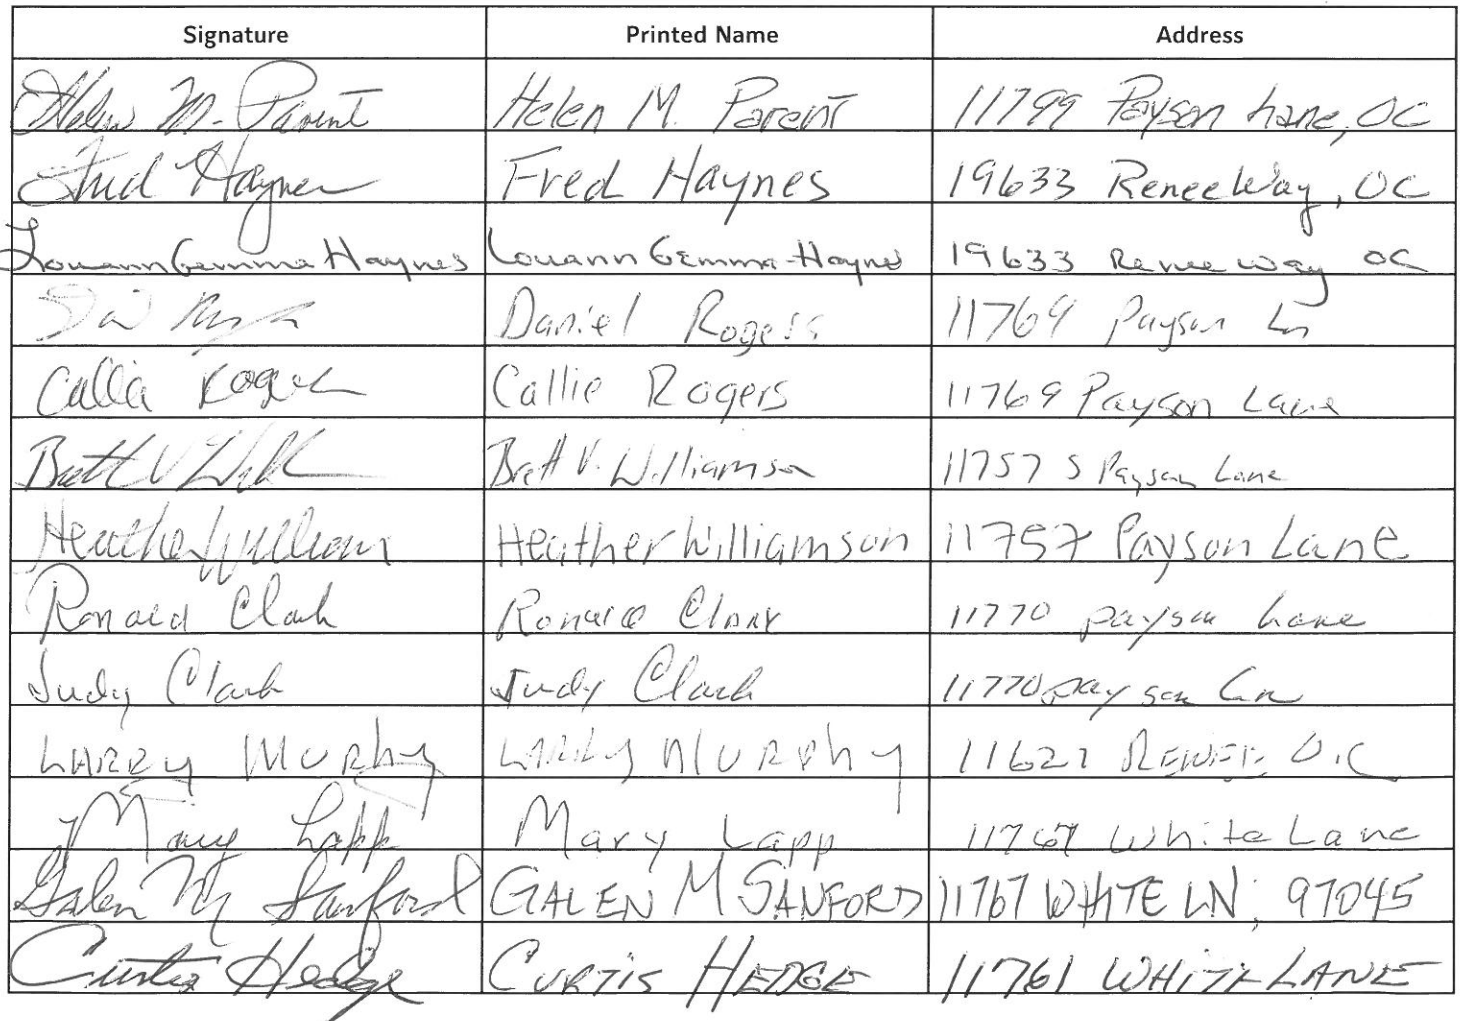 Signature Printed Name Address
Helen M. Parent Helen M. Parent 11799 Payson Lane, OC
Fred Haynes Fred Haynes 19633 Renee Way, OC
Louann Gemma Haynes Louann Gemma-Haynes 19633 Renee Way OC
Daniel Rogers 11769 Payson Ln
Callie Rogers Callie Rogers 11769 Payson Lane
Brett V Brett V. Williamson 11757 S Payson Lane
Heather Heather Williamson 11757 Payson Lane
Ronald Clark Ronald Clark 11770 Payson Lane
Judy Clark Judy Clark 11770 Payson Ln
LARRY MURPHY LARRY MURPHY O.C
Mary Lapp Mary Lapp 11767 White Lane
Galen M Sanford GALEN M SANFORD 11767 WHITE LN, 97045
Curtis Hedge CURTIS HEDGE 11761 WHITE LANE